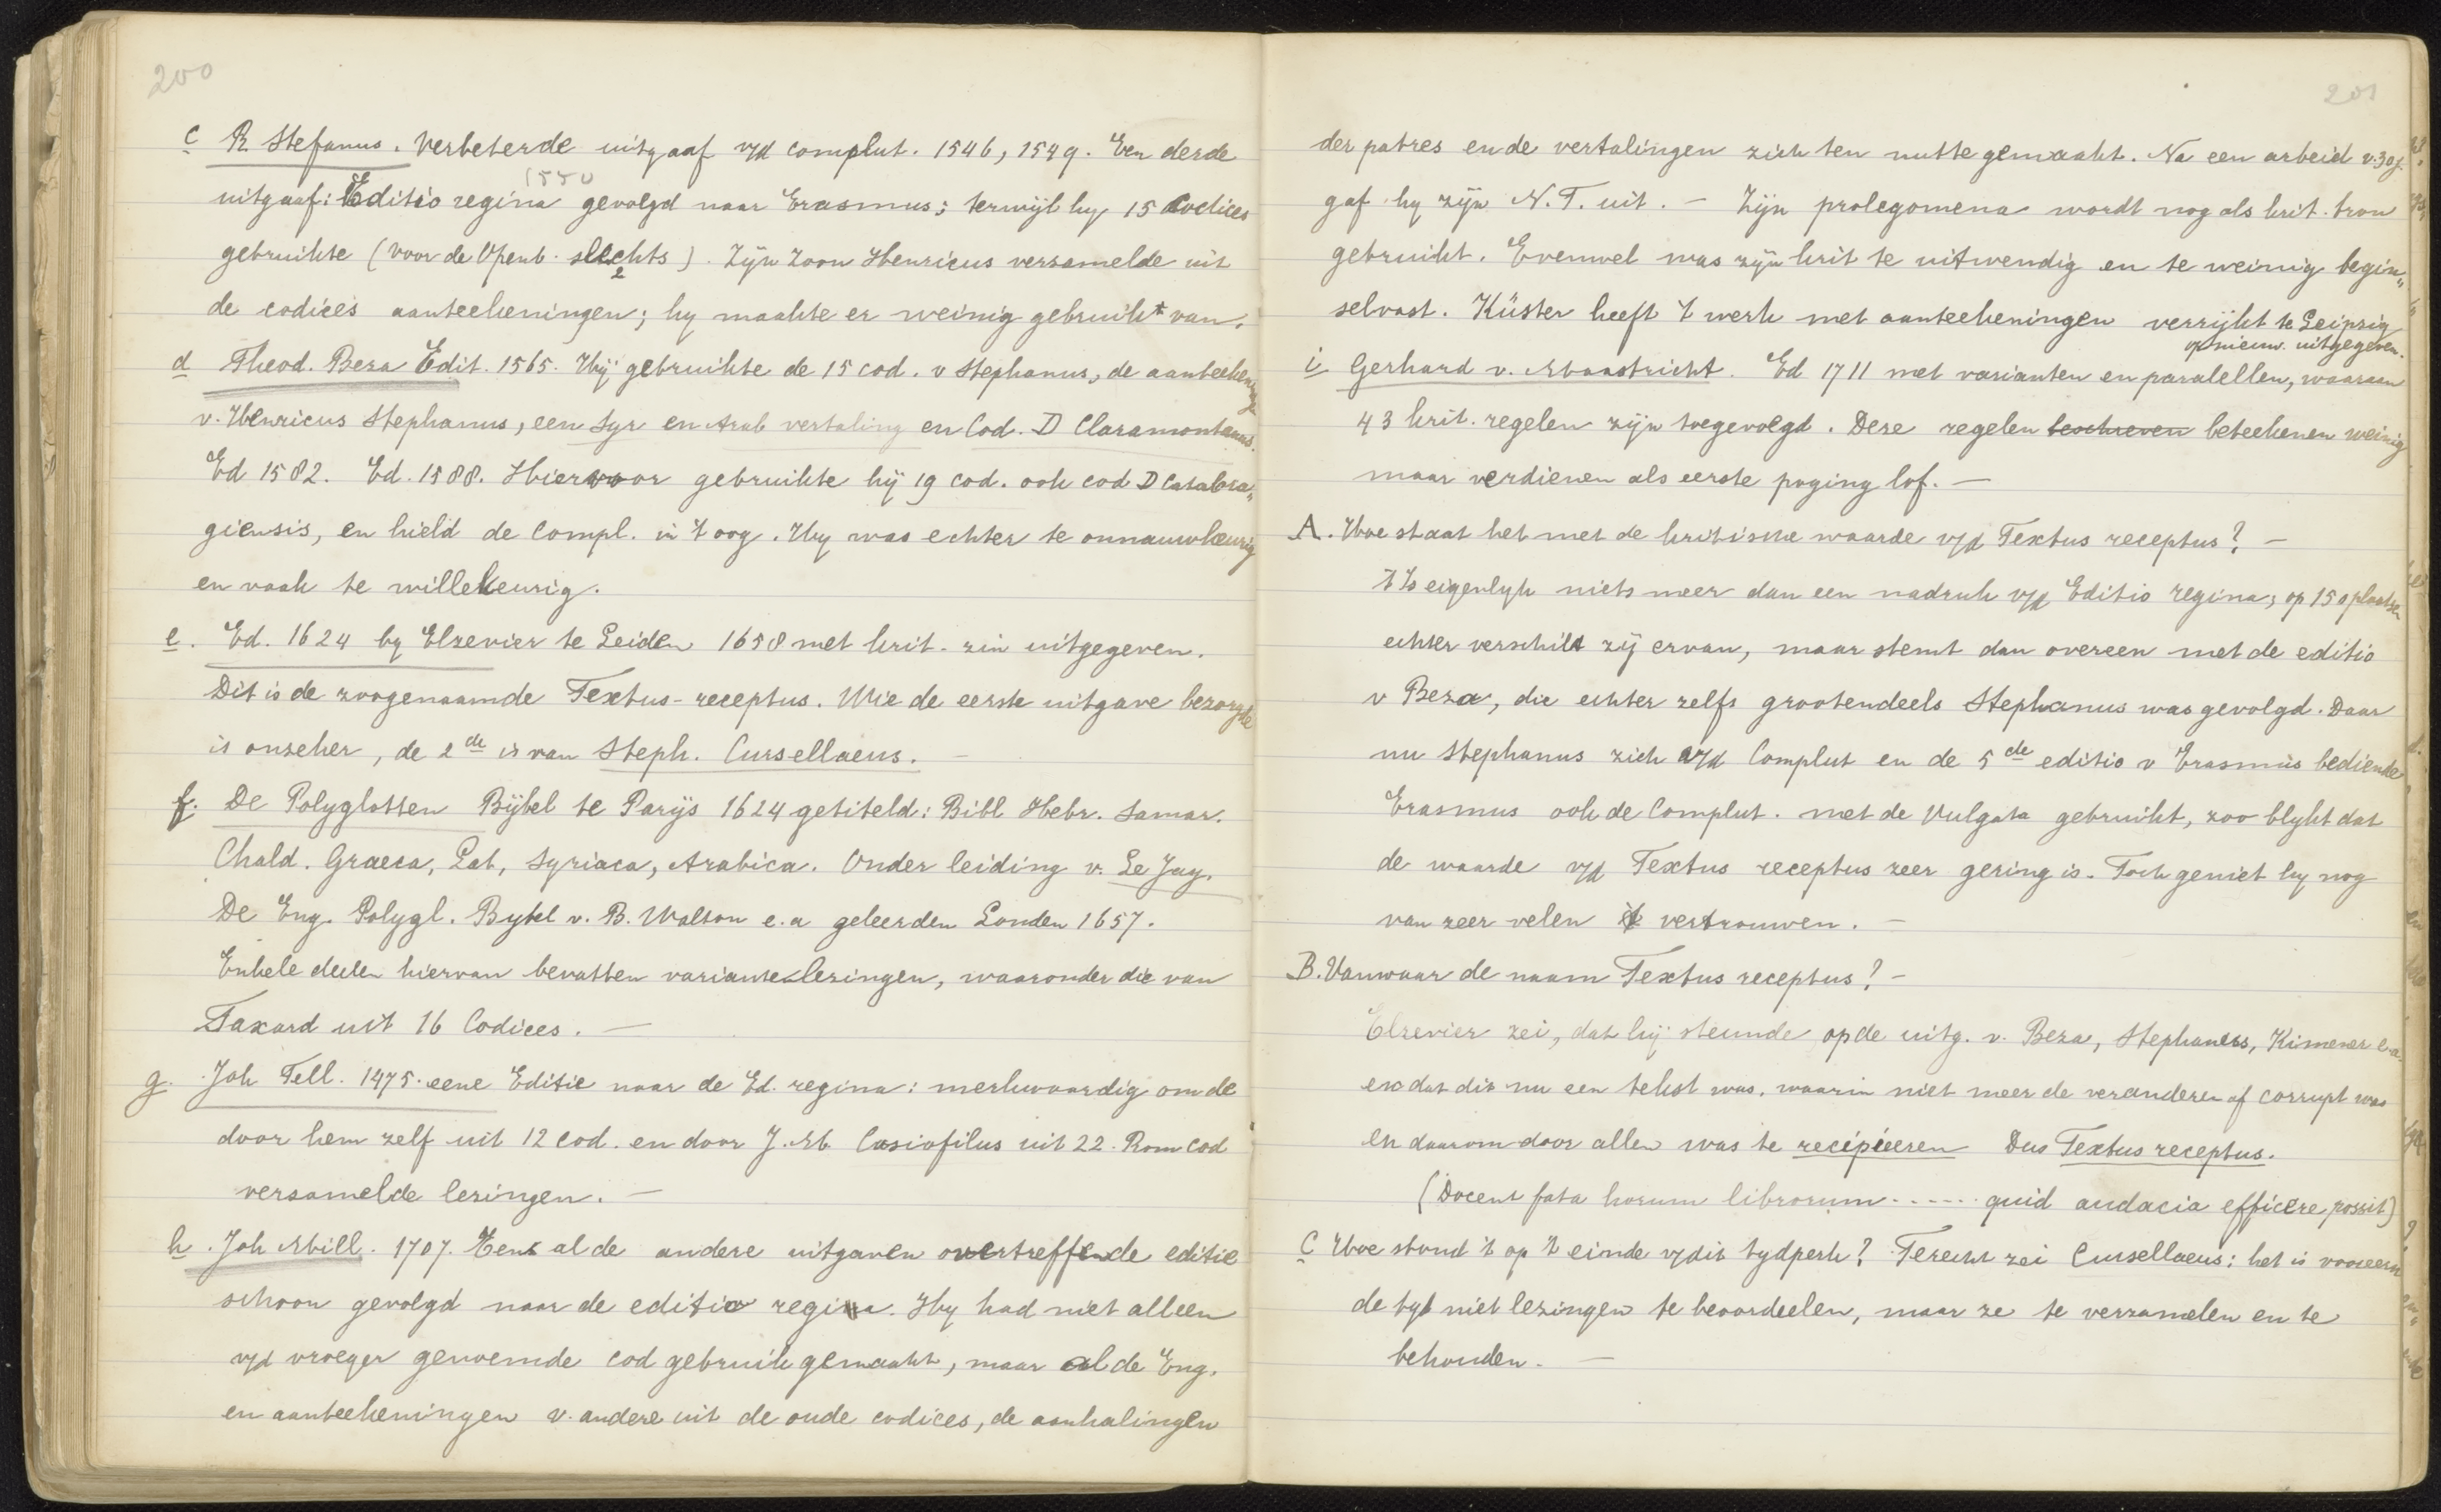 200
c R. Stefanus. Verbeterde uitgaaf v/d complut. 1546, 1549. Een derde
1550
uitgaaf: Editio regina gevolgd naar Erasmus; terwijl hy 15 Codices
gebruikte (voor de Openb. slechts 2). Zijn Zoon Henricus verzamelde uit
de codices aanteekeningen; hy maakte er weinig gebruik van.
d Theod. Beza Edit. 1565. Hij gebruikte de 15 cod. v Stephanus, de aanteekeninge
v. Henricus Stephanus, een Syr en Arab vertaling en Cod. D Claramontanus.
Ed 1582. Ed. 1588. Hiervoor gebruikte hij 19 cod. ook cod D Catabra„
giensis, en hield de Compl. in 't oog. Hy was echter te onnauwkeurig
en vaak te willekeurig.
e. Ed. 1624 by Elzevier te Leiden 1658 met krit. zin uitgegeven.
Dit is de zoogenaamde Textus-receptus. Wie de eerste uitgave bezorgde
is onzeker, de 2de is van Steph. Cursellaeus. —
f. De Polyglotten Bijbel te Parijs 1624 getiteld: Bibl Hebr. Samar.
Chald. Graeca, Lat, Syriaca, Arabica. Onder leiding v. Le Jay.
De Eng. Polygl. Bybel v. B. Walton e.a geleerden Londen 1657.
Enkele deelen hiervan bevatten variantenlezingen, waaronder die van
Faxard uit 16 Codices. —
g. Joh Fell. 1475. eene Editie naar de Ed. regina: merkwaardig om de
door hem zelf uit 12 cod. en door J. M. Casiofilus uit 22. Rom cod
verzamelde lezingen. —
h. Joh Mill. 1707. Eene al de andere uitgaven overtreffende editie
schoon gevolgd naar de editio regina. Hy had niet alleen
v/d vroeger genoemde cod gebruik gemaakt, maar al de Eng.
en aanteekeningen v. andere uit de oude codices, de aanhalingen
201
der patres en de vertalingen zich ten nutte gemaakt. Na een arbeid v. 30 j.
gaf hy zijn N.T. uit. — Zijn prolegomena wordt nog als krit. bron
gebruikt. Evenwel was zijn krit te uitwendig en te weinig begin„
selvast. Küster heeft 't werk met aanteekeningen verrijkt te Leipzig
opnieuw uitgegeven.
i. Gerhard v. Maastricht. Ed 1711 met varianten en paralellen, waaraan
43 krit. regelen zijn toegevolgd. Deze regelen beschreven beteekenen weinig
maar verdienen als eerste poging lof. —
A. Hoe staat het met de kritische waarde v/d Textus receptus? —
't Is eigenlyk niets meer dan een nadruk v/d Editio regina; op 150 plaatsen
echter verschilt zij ervan, maar stemt dan overeen met de editio
v Beza, die echter zelfs grootendeels Stephanus was gevolgd. Daar
nu Stephanus zich v/d Complut en de 5de editio v Erasmus bediende
Erasmus ook de Complut. met de Vulgata gebruikt, zoo blykt dat
de waarde v/d Textus receptus zeer gering is. Toch geniet hy nog
van zeer velen 't vertrouwen. —
B. Vanwaar de naam Textus receptus? —
Elzevier zei, dat hij steunde op de uitg. v. Beza, Stephanus, Ximenes e.a.
en dat dit nu een tekst was, waarin niet meer de veranderen of corrupt was
en daarom door allen was te recipieeren Dus Textus receptus.
(Docent fata horum librorum ...... quid audacia efficere possit)
C Hoe stond 't op 't einde v/dit tydperk? Terecht zei Cursellaeus: het is vooreerst
de tyd niet lezingen te beoordeelen, maar ze te verzamelen en te
behouden. —